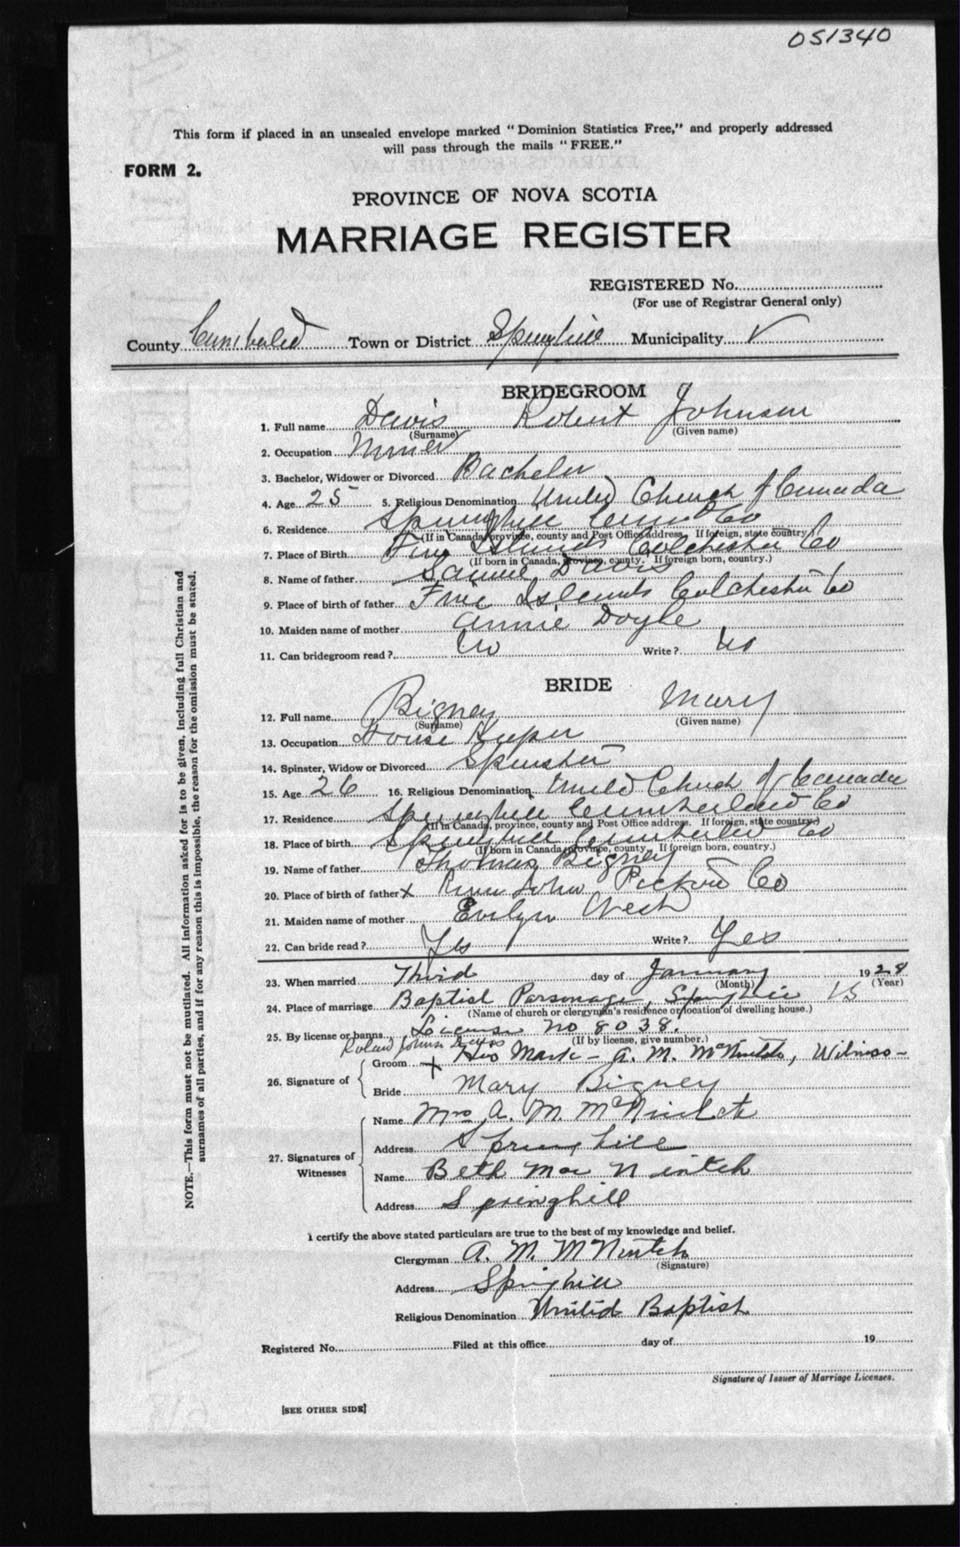 051340
This form if placed in an unsealed envelope marked "Dominion Statistics Free," and properly addressed
will pass through the mails "FREE."
FORM 2.
PROVINCE OF NOVA SCOTIA
MARRIAGE REGISTER
REGISTERED No.
(For use of Registrar General only)
County Cumberland Town or District Springhill Municipality
BRIDEGROOM
1. Full name Davis Robert Johnson
(Surname) (Given name)
2. Occupation Miner
3. Bachelor, Widower or Divorced Bachelor
4. Age 25 5. Religious Denomination United Church of Canada
6. Residence Springhill Cumb Co
(If in Canada, province, county and Post Office address. If foreign, state country)
7. Place of Birth Five Islands Colchester Co
(If born in Canada, province, county. If foreign born, country.)
8. Name of father Samuel Davis
9. Place of birth of father Five Islands Colchester Co
10. Maiden name of mother Annie Doyle
11. Can bridegroom read? No Write? No
BRIDE
12. Full name Bigney Mary
(Surname) (Given name)
13. Occupation House Keeper
14. Spinster, Widow or Divorced Spinster
15. Age 26 16. Religious Denomination United Church of Canada
17. Residence Springhill Cumberland Co
(If in Canada, province, county and Post Office address. If foreign, state country)
18. Place of birth Springhill Cumberland Co
(If born in Canada, province, county. If foreign born, country.)
19. Name of father Thomas Bigney
20. Place of birth of father x River John Pictou Co
21. Maiden name of mother Evelyn West
22. Can bride read? Yes Write? Yes
23. When married Third day of January 1928
(Month) (Year)
24. Place of marriage Baptist Parsonage, Springhill
(Name of church or clergyman's residence or location of dwelling house.)
25. By license or banns License No 8038.
(If by license, give number.)
26. Signature of
Groom x His Mark - A. M. McNintch, Witness -
Bride Mary Bigney
27. Signatures of Witnesses
Name Mrs A. M McNintch
Address Springhill
Name Beth Mac Nintch
Address Springhill
I certify the above stated particulars are true to the best of my knowledge and belief.
Clergyman A. M. McNintch
(Signature)
Address Springhill
Religious Denomination United Baptist
Registered No. Filed at this office day of 19
Signature of Issuer of Marriage Licenses.
[SEE OTHER SIDE]
NOTE.—This form must not be mutilated. All information asked for is to be given, including full Christian and
surnames of all parties, and if for any reason this is impossible, the reason for the omission must be stated.